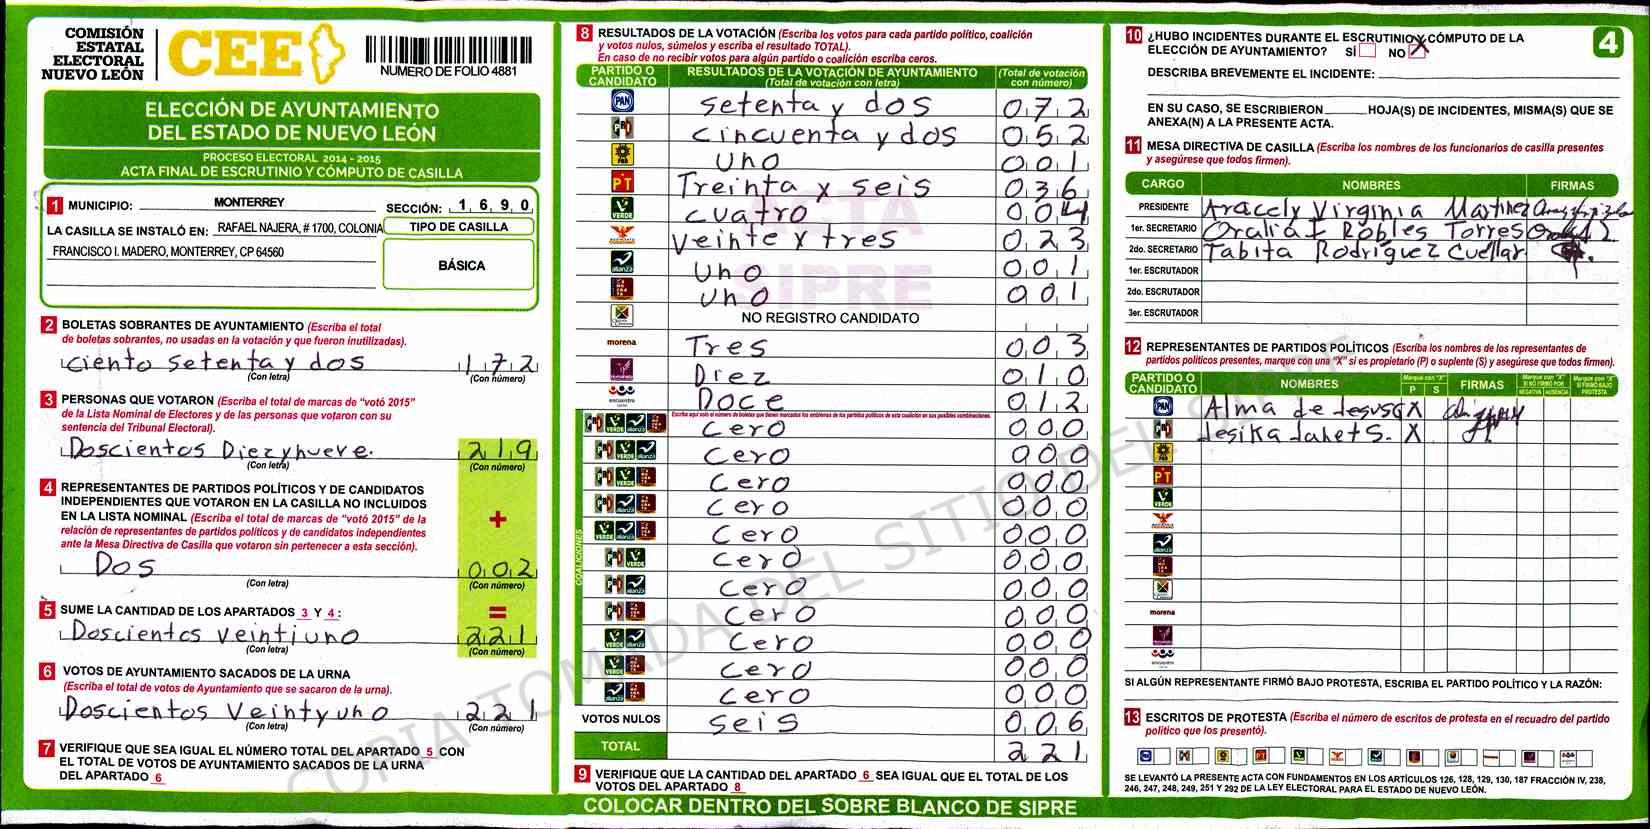 COMISIÓN
ESTATAL
ELECTORAL
NUEVO LEÓN
CEE
NUMERO DE FOLIO 4881
ELECCIÓN DE AYUNTAMIENTO
DEL ESTADO DE NUEVO LEÓN
PROCESO ELECTORAL 2014 - 2015
ACTA FINAL DE ESCRUTINIO Y CÓMPUTO DE CASILLA
1 MUNICIPIO: MONTERREY SECCIÓN: 1 6 9 0
LA CASILLA SE INSTALÓ EN: RAFAEL NAJERA, # 1700, COLONIA
FRANCISCO I. MADERO, MONTERREY, CP 64560
TIPO DE CASILLA
BÁSICA
2 BOLETAS SOBRANTES DE AYUNTAMIENTO (Escriba el total
de boletas sobrantes, no usadas en la votación y que fueron inutilizadas).
Ciento setenta y dos 172
(Con letra) (Con número)
3 PERSONAS QUE VOTARON (Escriba el total de marcas de "votó 2015"
de la Lista Nominal de Electores y de las personas que votaron con su
sentencia del Tribunal Electoral).
Doscientos Diezynueve. 219
(Con letra) (Con número)
4 REPRESENTANTES DE PARTIDOS POLÍTICOS Y DE CANDIDATOS
INDEPENDIENTES QUE VOTARON EN LA CASILLA NO INCLUIDOS
EN LA LISTA NOMINAL (Escriba el total de marcas de "votó 2015" de la
relación de representantes de partidos políticos y de candidatos independientes
ante la Mesa Directiva de Casilla que votaron sin pertenecer a esta sección).
+
Dos 002
(Con letra) (Con número)
5 SUME LA CANTIDAD DE LOS APARTADOS 3 Y 4 :
=
Doscientos veintiuno 221
(Con letra) (Con número)
6 VOTOS DE AYUNTAMIENTO SACADOS DE LA URNA
(Escriba el total de votos de Ayuntamiento que se sacaron de la urna).
Doscientos Veintyuno 221
(Con letra) (Con número)
7 VERIFIQUE QUE SEA IGUAL EL NÚMERO TOTAL DEL APARTADO 5 CON
EL TOTAL DE VOTOS DE AYUNTAMIENTO SACADOS DE LA URNA
DEL APARTADO 6
8 RESULTADOS DE LA VOTACIÓN (Escriba los votos para cada partido político, coalición
y votos nulos, súmelos y escriba el resultado TOTAL).
En caso de no recibir votos para algún partido o coalición escriba ceros.
PARTIDO O CANDIDATO RESULTADOS DE LA VOTACIÓN DE AYUNTAMIENTO (Total de votación con letra) (Total de votación con número)
PAN setenta y dos 072
PRD cincuenta y dos 052
uno 001
PT Treinta y seis 036
VERDE cuatro 004
Veinte y tres 023
alianza uno 001
uno 001
NO REGISTRO CANDIDATO
morena Tres 003
Diez 010
encuentro Doce 012
Escriba aquí solo el número de boletas que tienen marcados los emblemas de los partidos políticos de esta coalición en sus posibles combinaciones.
COALICIONES
VERDE alianza cero 000
VERDE alianza cero 000
VERDE cero 000
alianza cero 000
VERDE alianza cero 000
VERDE cero 000
alianza cero 000
cero 000
VERDE alianza cero 000
VERDE cero 000
alianza cero 000
VOTOS NULOS seis 006
TOTAL 221
9 VERIFIQUE QUE LA CANTIDAD DEL APARTADO 6 SEA IGUAL QUE EL TOTAL DE LOS
VOTOS DEL APARTADO 8
COLOCAR DENTRO DEL SOBRE BLANCO DE SIPRE
ACTA
SIPRE
COPIA TOMADA DEL SITIO DEL SIPRE
4
10 ¿HUBO INCIDENTES DURANTE EL ESCRUTINIO Y CÓMPUTO DE LA
ELECCIÓN DE AYUNTAMIENTO? SÍ NO X
DESCRIBA BREVEMENTE EL INCIDENTE:
EN SU CASO, SE ESCRIBIERON HOJA(S) DE INCIDENTES, MISMA(S) QUE SE
ANEXA(N) A LA PRESENTE ACTA.
11 MESA DIRECTIVA DE CASILLA (Escriba los nombres de los funcionarios de casilla presentes
y asegúrese que todos firmen).
CARGO NOMBRES FIRMAS
PRESIDENTE Aracely Virginia Martinez
1er. SECRETARIO Oralia F Robles Torres
2do. SECRETARIO Tabita Rodriguez Cuellar
1er. ESCRUTADOR
2do. ESCRUTADOR
3er. ESCRUTADOR
12 REPRESENTANTES DE PARTIDOS POLÍTICOS (Escriba los nombres de los representantes de
partidos políticos presentes, marque con una "X" si es propietario (P) o suplente (S) y asegúrese que todos firmen).
PARTIDO O CANDIDATO NOMBRES Marque con "X" P S FIRMAS Marque con "X" SI NO FIRMÓ POR NEGATIVA AUSENCIA Marque con "X" SI FIRMÓ BAJO PROTESTA
PAN Alma de Jesus G X
Jesika Janet S. X
PT
VERDE
morena
encuentro
SI ALGÚN REPRESENTANTE FIRMÓ BAJO PROTESTA, ESCRIBA EL PARTIDO POLÍTICO Y LA RAZÓN:
13 ESCRITOS DE PROTESTA (Escriba el número de escritos de protesta en el recuadro del partido
político que los presentó).
SE LEVANTÓ LA PRESENTE ACTA CON FUNDAMENTOS EN LOS ARTÍCULOS 126, 128, 129, 130, 187 FRACCIÓN IV, 238,
246, 247, 248, 249, 251 Y 292 DE LA LEY ELECTORAL PARA EL ESTADO DE NUEVO LEÓN.